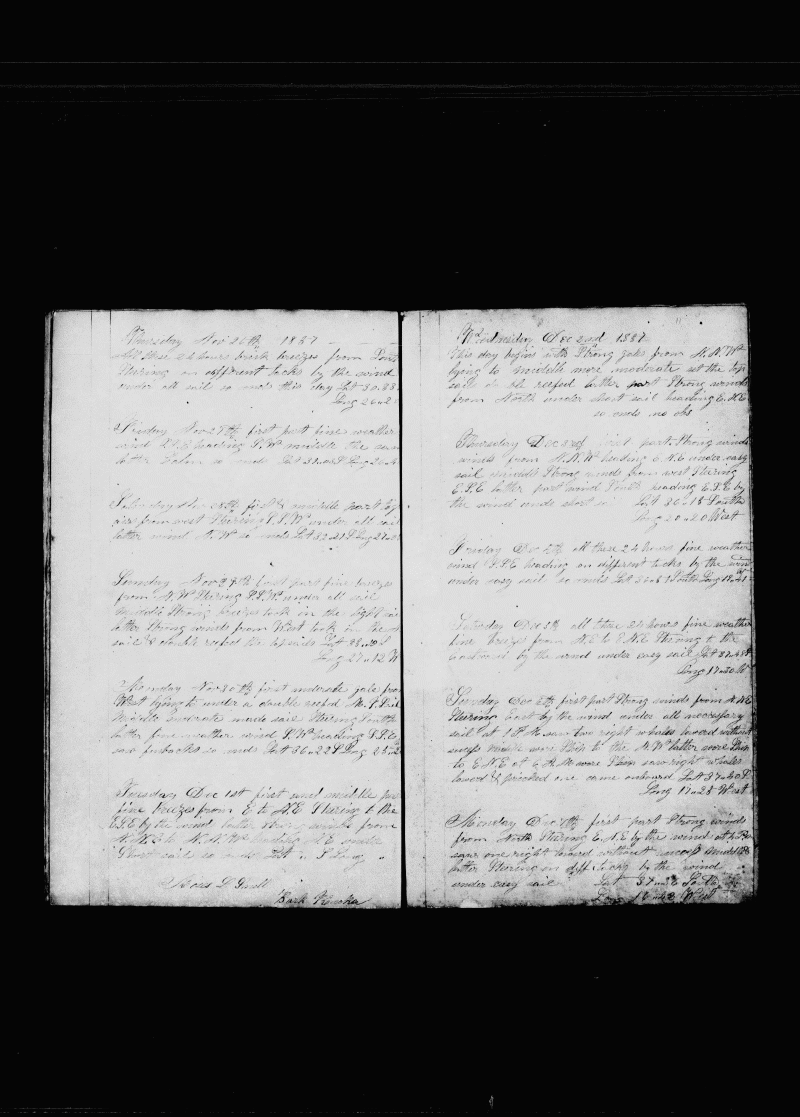 Thursday Nov 26th 1857
All these 24 hours brisk breezes from South
Stering on different tacks by the wind
under all sails so ends this day Lat 30..33
Long 26..2
Friday Nov 27th first part fine weather
wind E.S.E heading S.W middle the same
latter Calm so ends Lat 31 S Long 26
Saturday Nov 28th first & middle part
from west Stering S.S.W under all sail
latter wind N.W so ends Lat 32..21 S Long 27
Sunday Nov 29th first part fine breezes
from N.W Stering S.S.W under all sail
middle Strong breezes took in the light
latter Strong winds from West took in the
sail & double reefed the topsails Lat S
Long 27..12 W
Monday Nov 30th first moderate gale from
West lying to under a double reefed M.T.Sail
Middle moderate made sail Stering South
latter fine weather wind S.W heading S.S.E
saw finbacks so ends Lat 36..22 S Long 25
Tuesday Dec 1st first and middle part
fine breezes from E to N.E Stering to the
E.S.E by the wind latter Strong winds from
to N.N.W heading N.E under
Short sail so ends Lat S Long
Moses L Snell
Bark
Wednesday Dec 2nd 1857
This day begins with Strong gales from N.N.W
lying to middle more moderate set the top
sails double reefed latter part Strong winds
from North under short sail heading E.N.E
so ends no obs
Thursday Dec 3rd first part Strong winds
winds from N.N.W heading E.N.E under easy
sail middle Strong winds from west Stering
E.S.E latter part wind South heading E.S.E by
the wind under short Lat 36..18 South
Long 20..20 West
Friday Dec 4th all these 24 hours fine weather
wind S.S.E heading on different tacks by the wind
under easy sail so ends Lat 36 South Long 19
Saturday Dec 5th all these 24 hours fine weather
fine breezes from N.E to E.N.E Stering to the
Eastward by the wind under easy sail Lat 37..45 S
Long 17..20 W
Sunday Dec 6th first part Strong winds from N.N.E
Stering East by the wind under all necessary
sail at 1 P.M saw two right whales lowerd without
success Middle wore Ship to the N.W latter wore Ship
to E.N.E at 6 A.M wore Ship saw right whales
lowerd & struck one came onboard Lat 37..40 S
Long 17..25 West
Monday Dec 7th first part Strong winds
from North Stering E.N.E by the wind at 4 P.M
saw one right lowerd without success middle
latter Stering on diff tacks by the wind
under easy sail Lat 37 South
Long 18 West